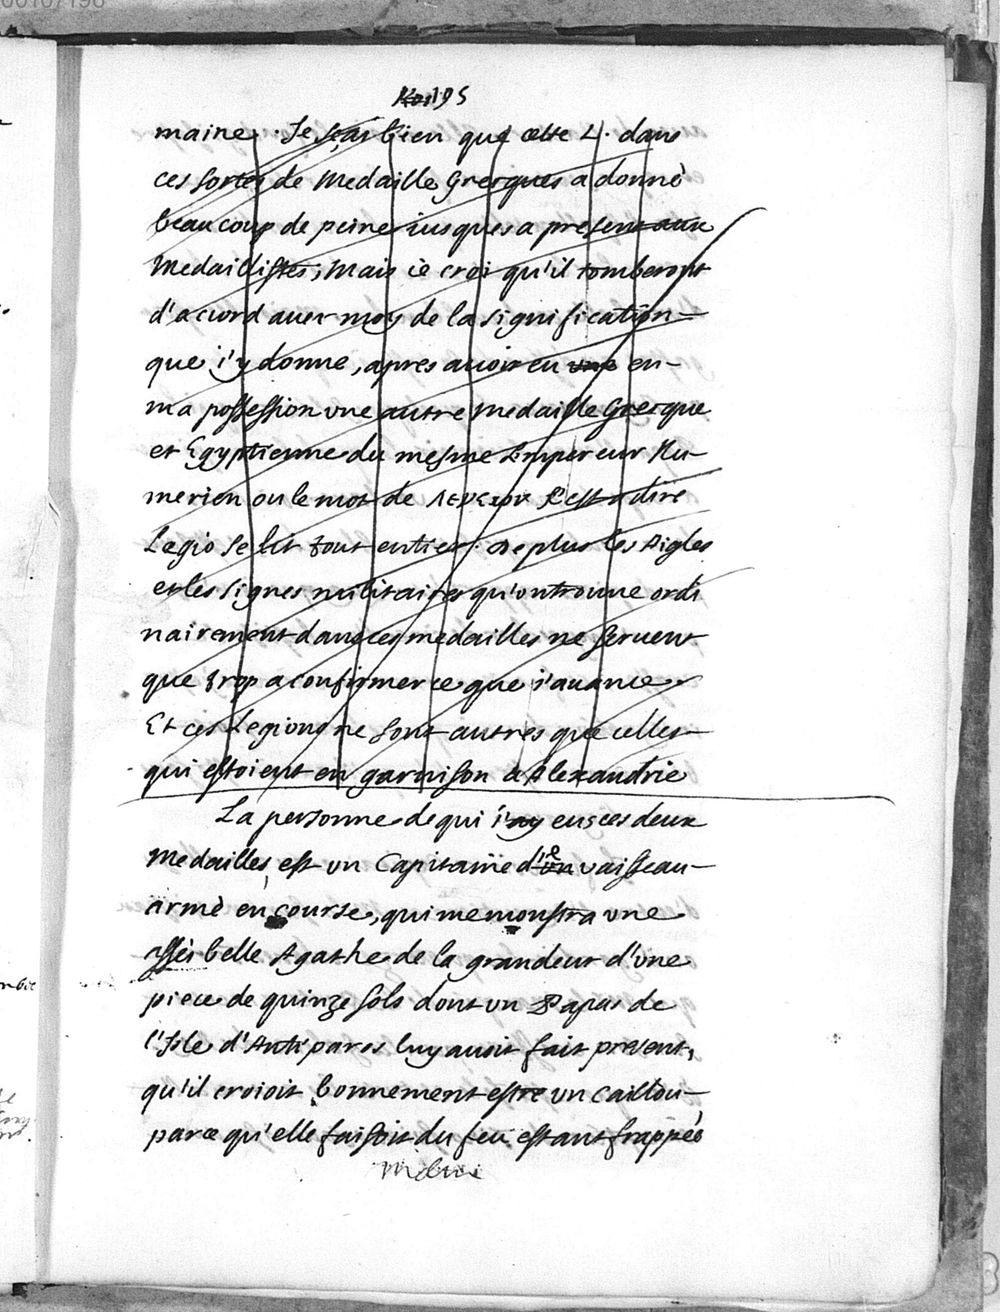 95
maine. Je sçai bien que cette L. dans
ces sortes de Medaille Grecques a donnè
beaucoup de peine iusques a present aux
Medaillistes; Mais ie croi qu'il tomberont
d'acord auec moy de la signification
que i'y donne, apres auoir eu en
ma possession vne autre Medaille Grecque
et Egyptienne du mesme Empereur Nu-
merien ou le mot de c'est a dire
Legio se lit tout entier. De plus les Aigles
et les signes militaires qu'on trouue ordi
nairement dans ces medailles ne seruent
que trop a confirmer ce que i'auance.
Et ces Legions ne sont autres que celles
qui estoient en garnison a Alexandrie
La personne de qui i'ay eus ces deux
Medailles est un Capitaine d'un vaisseau
armè en course, qui me monstra vne
assès belle Agathe de la grandeur d'une
piece de quinze sols dont un Papas de
l'Isle d'Antiparos luy auoit fait present,
qu'il croioit bonnement estre un caillou
parce qu'elle faisoit du feu estant frappèe